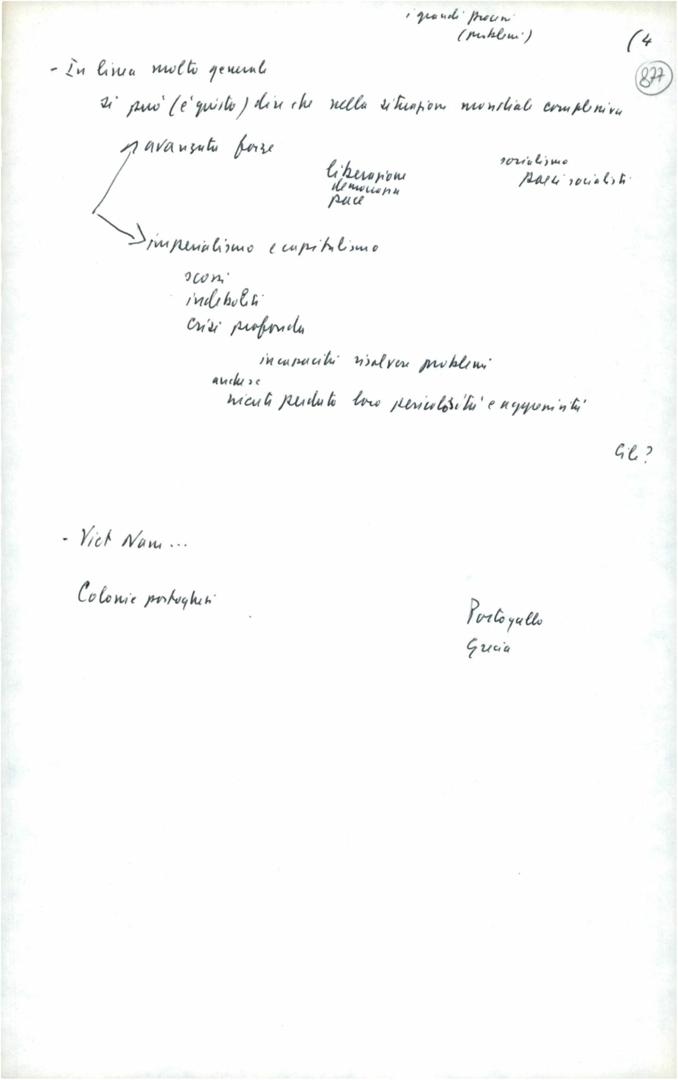 i grandi processi
(problemi)
(4
877
- In linea molto generale
si può (è giusto) dire che nella situazione mondiale complessiva
avanzata forze
liberazione
democrazia
pace
socialismo
paesi socialisti
imperialismo e capitalismo
scossi
indeboliti
crisi profonda
incapacità risolvere problemi
anche se
niente perduto loro pericolosità e aggressività
Cile?
- Viet Nam...
Colonie portoghesi
Portogallo
Grecia